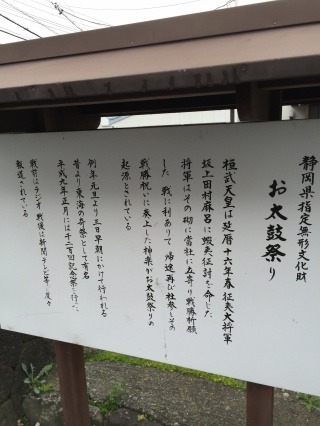 静岡県指定無形文化財
お太鼓祭り
桓武天皇は延暦十六年春征夷大将軍
坂上田村麻呂に蝦夷征討を命じた
将軍はその砌に当社に立寄り戦勝祈願
した 戦に利ありて 帰途再び社参しその
戦勝祝いに奏上した神楽がお太鼓祭りの
起源とされている
例年元旦より三日早朝にかけて行われる
昔より東海の奇祭として有名
平成九年正月には千二百回記念祭を行った
戦前はラジオ 戦後は新聞テレビ等に度々
報道されている